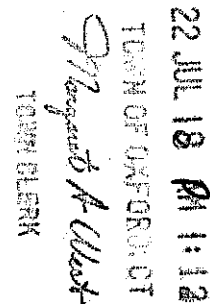 22 JUL 18 PM 1:12
TOWN OF OXFORD, CT
Margaret A West
TOWN CLERK